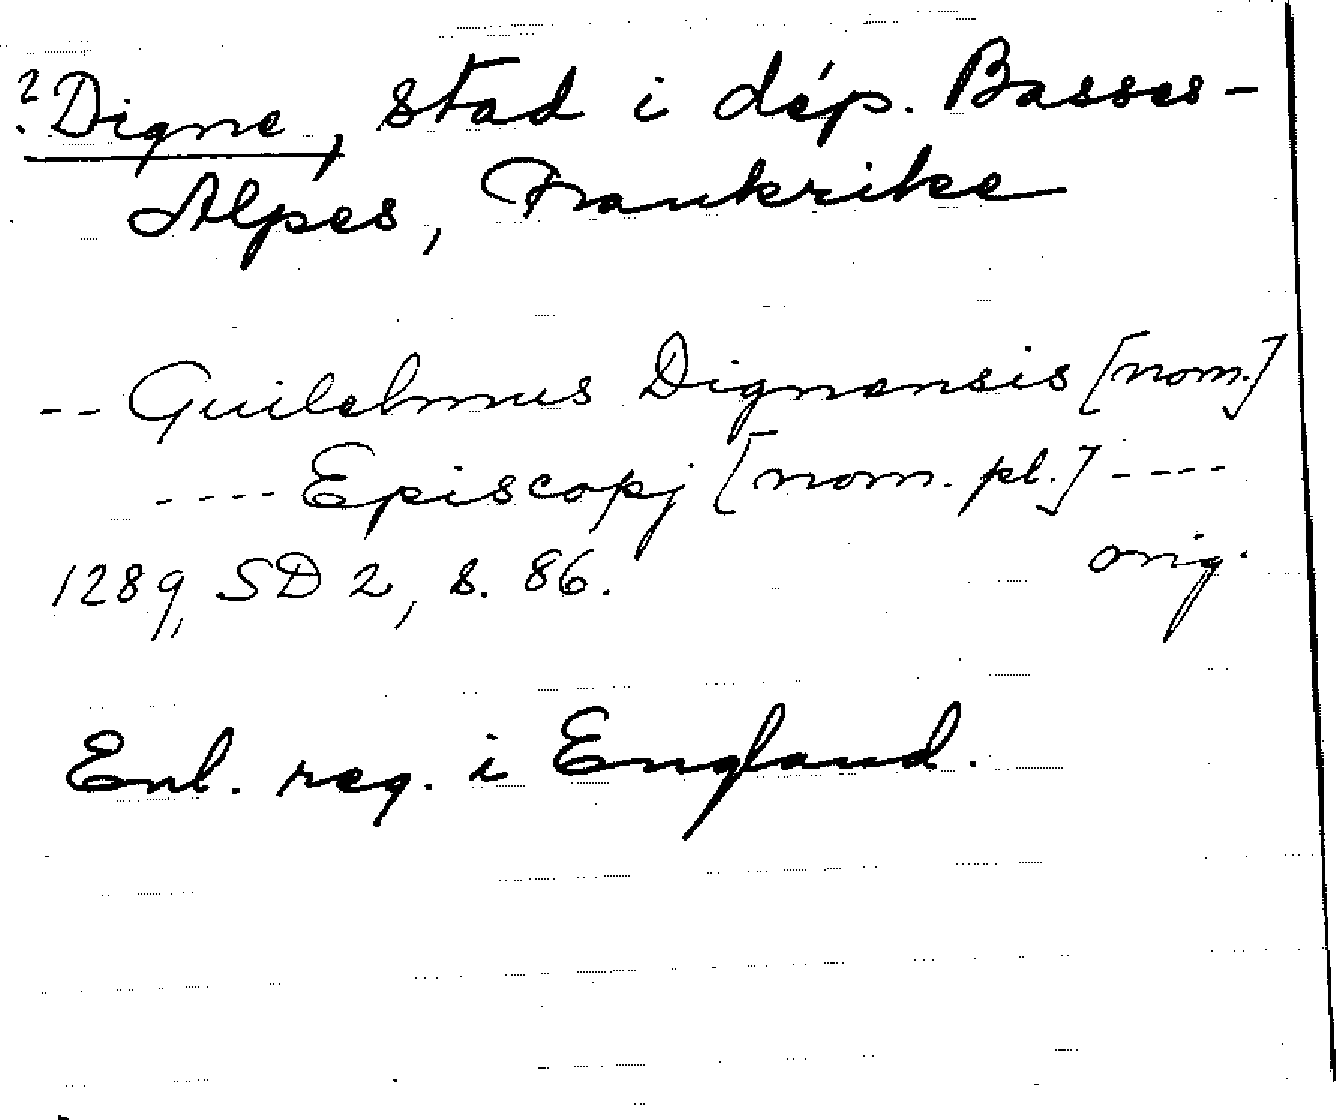 ? Digne, stad i dép. Basses-
Alpes, Frankrike
-- Guilelmus Dignensis [nom.]
---- Episcopj [nom. pl.] ----
1289, SD 2, s. 86. orig.
Enl. reg. i England.